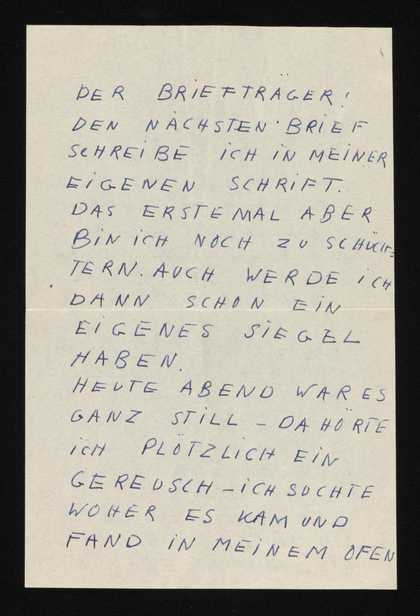 DER BRIEFTRÄGER!
DEN NÄCHSTEN BRIEF
SCHREIBE ICH IN MEINER
EIGENEN SCHRIFT.
DAS ERSTE MAL ABER
BIN ICH NOCH ZU SCHÜCH=
TERN. AUCH WERDE ICH
DANN SCHON EIN
EIGENES SIEGEL
HABEN.
HEUTE ABEND WAR ES
GANZ STILL – DA HÖRTE
ICH PLÖTZLICH EIN
GEREUSCH – ICH SUCHTE
WOHER ES KAM UND
FAND IN MEINEM OFEN